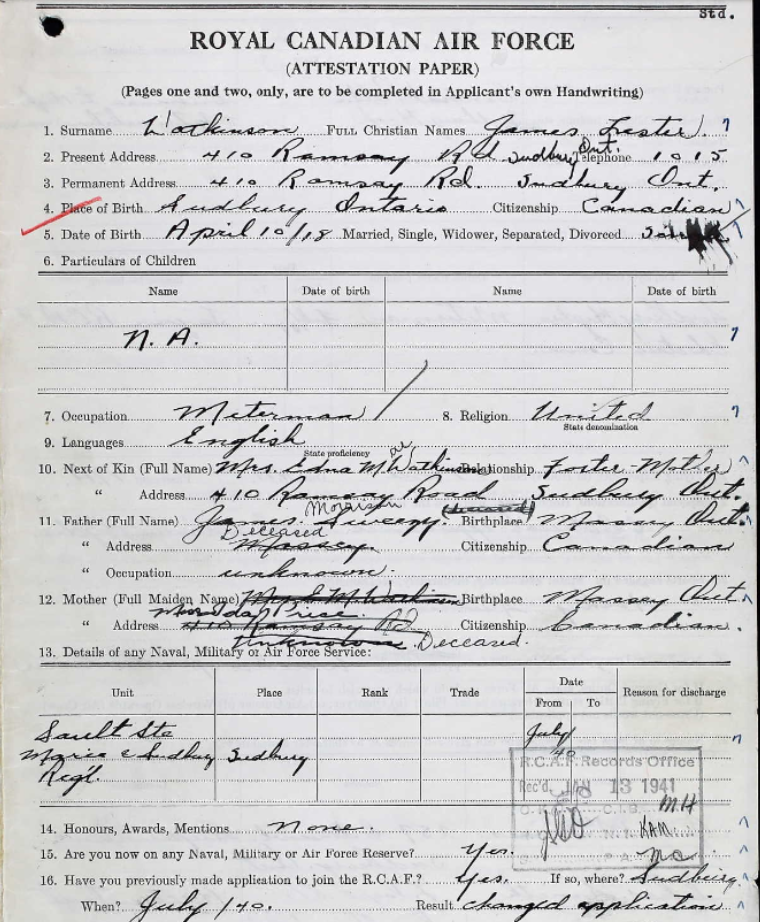 Std.
ROYAL CANADIAN AIR FORCE
(ATTESTATION PAPER)
(Pages one and two, only, are to be completed in Applicant's own Handwriting)
1. Surname Watkinson FULL Christian Names James Lester.
2. Present Address 410 Ramsay Rd Sudbury Ont. Telephone 1015
3. Permanent Address 410 Ramsay Rd. Sudbury Ont.
4. Place of Birth Sudbury Ontario Citizenship Canadian
5. Date of Birth April 10/18 Married, Single, Widower, Separated, Divorced
6. Particulars of Children
Name Date of birth Name Date of birth
N. A.
7. Occupation Meterman 8. Religion United
State denomination
9. Languages English
State proficiency
10. Next of Kin (Full Name) Mrs. Edna Mae Watkinson Relationship Foster-Mother
" Address 410 Ramsay Road Sudbury Ont.
11. Father (Full Name) James Morrison Sweezy. (Deceased) Birthplace Massey Ont.
" Address Deceased Massey. Citizenship Canadian
" Occupation unknown.
12. Mother (Full Maiden Name) Mrs E. M. Watkinson Birthplace Massey Ont.
Price.
" Address 410 Ramsay Rd Citizenship Canadian.
Unknown Deceased.
13. Details of any Naval, Military or Air Force Service:
Unit Place Rank Trade Date From To Reason for discharge
Sault Ste July
Marie & Sudbury Sudbury '40
Reg't.
R.C.A.F. Records Office
Rec'd. JAN 13 1941
M.H
KAM.
14. Honours, Awards, Mentions None.
15. Are you now on any Naval, Military or Air Force Reserve? Yes.
16. Have you previously made application to join the R.C.A.F.? Yes. If so, where? Sudbury
When? July /40. Result changed application